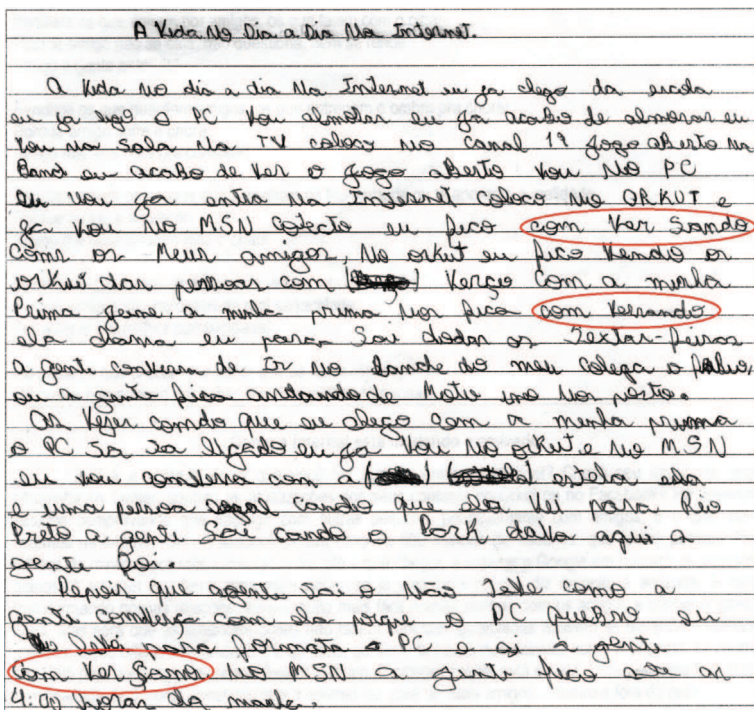 A Vida No Dia a Dia Na Internet.
A Vida no dia a dia na Internet eu ja chego da escola
eu ja ligo o PC vou almolar eu ja acabo de almorar eu
vou na sala na TV coloco no canal 19 jogo aberto na
Band eu acabo de ver o jogo aberto vou no PC
eu vou ja entra na Internet coloco no ORKUT e
ja vou no MSN eu fico com ver sando
com os meus amigos, no orkut eu fico vendo os
orkut das pessoas com verço com a minha
Prima a minha prima nos fica com versando
ela chama eu para sai dodas os Sextas-feiras
a gente conversa de Ir no do meu colega o
ou a gente fica andando de Moto uno nos posto.
As vezes comdo que eu chego com a minha prima
o PC Ja Ja ligado eu ja vou no orkut e no MSN
eu vou comversa com a ela
e uma pessoa legal cando que ela vei para Rio
Preto a gente Sai cando o dalla aqui a
gente foi.
Depois que agente sai o não teve como a
gente comverça com ela porque o PC quebro eu
para formata o PC e ai a gente
com ver çamo no MSN a gente fico ate as
4:00 horas da